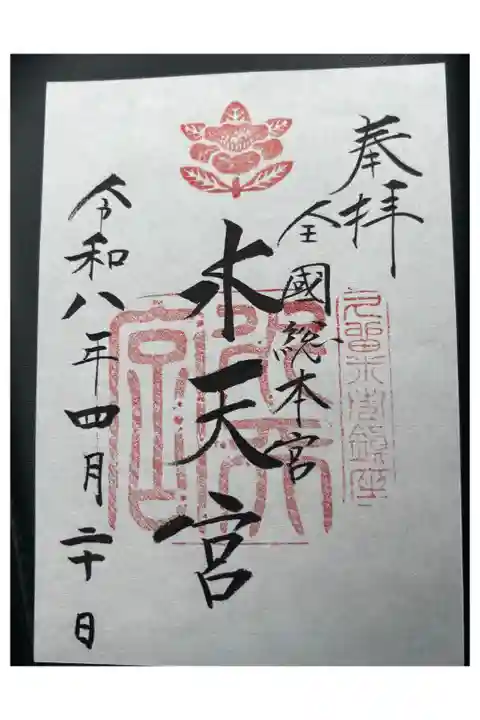 奉拝
久留米市鎮座
全國総本宮
水天宮
令和八年四月二十日